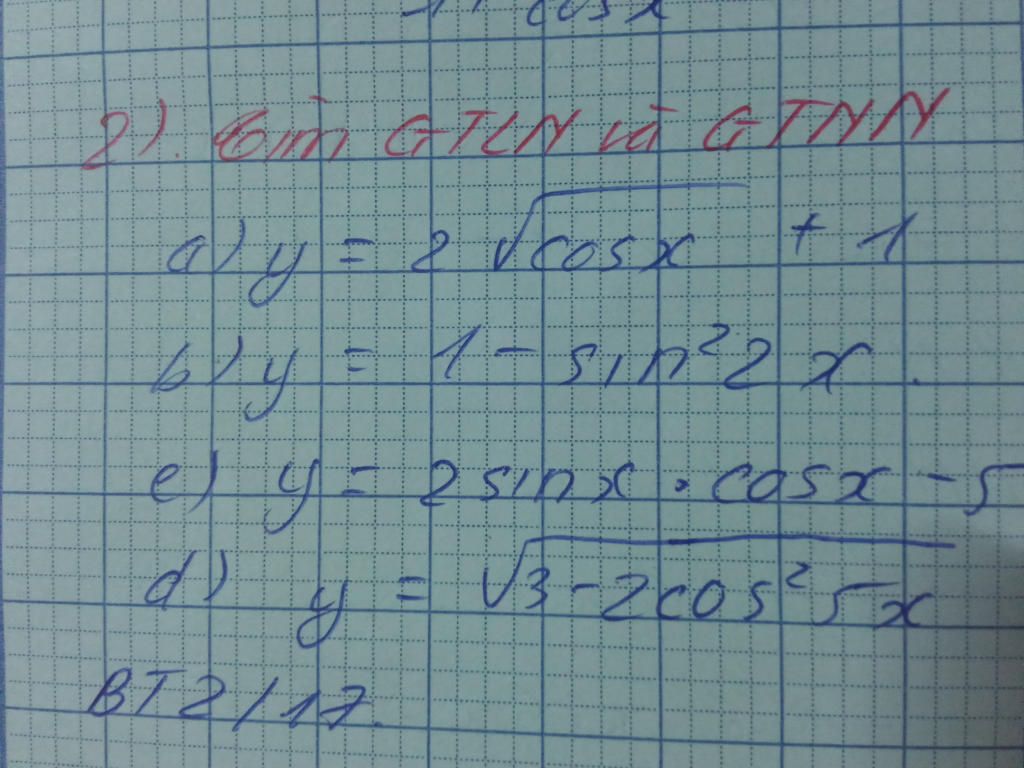 cosx
2). Tìm GTLN và GTNN
a) y = 2 √cosx + 1
b) y = 1 - sin² 2 x.
c) y = 2 sinx . cosx - 5
d) y = √3 - 2cos² 5x
BT2/17.